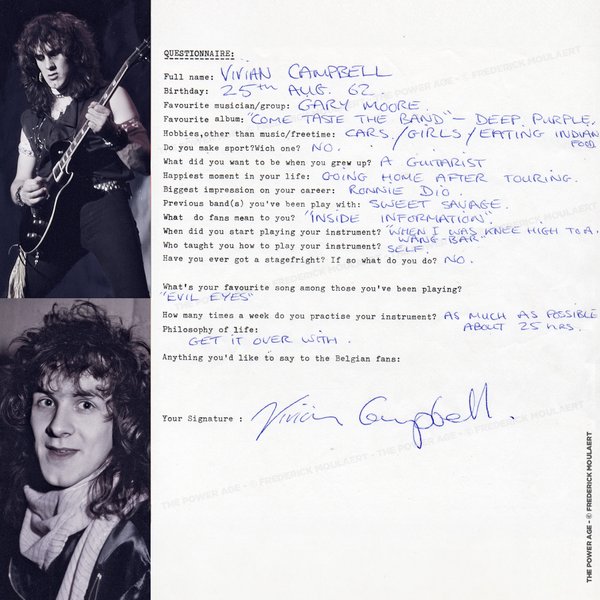 QUESTIONNAIRE:
Full name: VIVIAN CAMPBELL
Birthday: 25TH AUG. 62.
Favourite musician/group: GARY MOORE.
Favourite album: "COME TASTE THE BAND" - DEEP PURPLE.
Hobbies,other than music/freetime: CARS / GIRLS / EATING INDIAN
FOOD
Do you make sport?Wich one? NO.
What did you want to be when you grew up? A GUITARIST
Happiest moment in your life: GOING HOME AFTER TOURING.
Biggest impression on your career: RONNIE DIO.
Previous band(s) you've been play with: SWEET SAVAGE.
What do fans mean to you? "INSIDE INFORMATION"
When did you start playing your instrument? "WHEN I WAS KNEE HIGH TO A.
WANG-BAR"
Who taught you how to play your instrument? SELF.
Have you ever got a stagefright? If so what do you do? NO.
What's your favourite song among those you've been playing?
"EVIL EYES"
How many times a week do you practise your instrument? AS MUCH AS POSSIBLE
ABOUT 25 HRS.
Philosophy of life:
GET IT OVER WITH.
Anything you'd like to say to the Belgian fans:
Your Signature : Vivian Campbell.
THE POWER AGE - © FREDERICK MOULAERT
THE POWER AGE - © FREDERICK MOULAERT - THE POWER AGE - © FREDERICK MOULAERT
THE POWER AGE - © FREDERICK MOULAERT